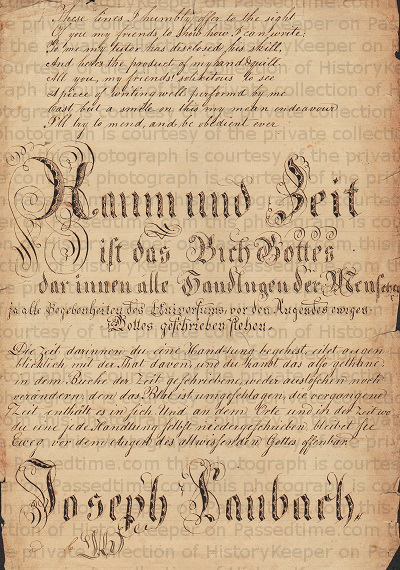 These lines I humbly offer to the sight
Of you my friends to shew how I can write:
To me my Tutor has disclosed his skill,
And here's the product of my hand & quill.
All you, my friends! solicitous to see
A piece of writing well performd by me
Cast but a smile on this my mean endeavour
I'll try to mend, and be obedient ever
Raum und Zeit
ist das Buch Gottes
darinnen alle Handlugen der Menschen
ja alle Begebenheiten des Universums, vor den Augen des ewigen
Gottes geschrieben stehen.
Die Zeit darinnen du eine Handlung begehest, eilet augen
blicklich mit der That davon, und du kanst das also gethane
in dem Buche der Zeit geschriebene, weder auslöschen noch
verändern, dem das Blat ist umgeschlagen, die vergangene
Zeit enthält es in sich Und an dem Orte und in der Zeit wo
du eine jede Handlung selbst niedergeschrieben bleibet sie
Ewig vor dem Augen des allwissenden Gottes offenbar
Joseph Laubach.